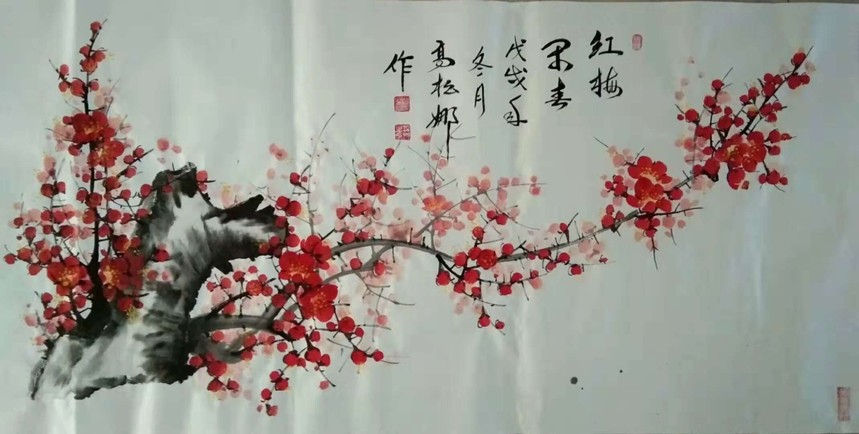 红梅
早春
戊戌年
冬月
高松娜
作